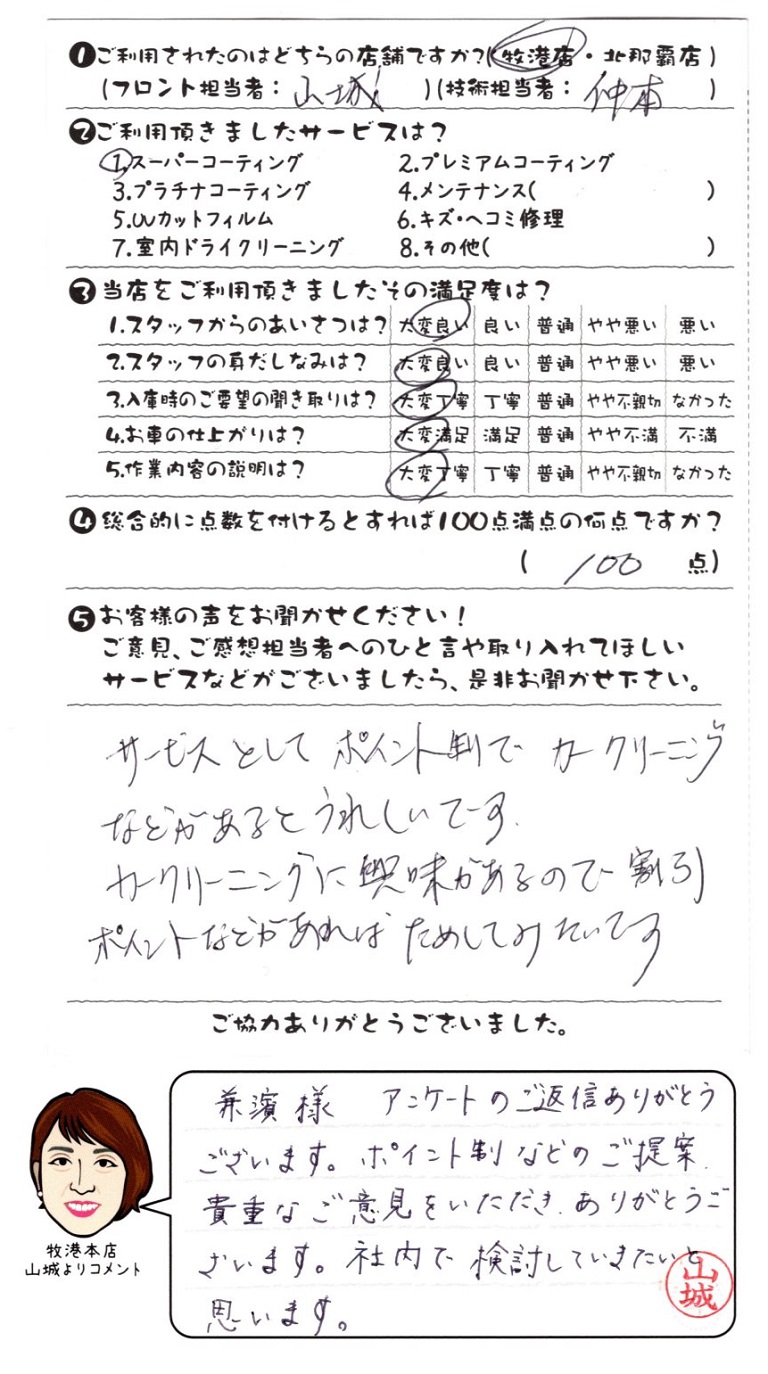 ❶ご利用されたのはどちらの店舗ですか?(牧港店・北那覇店)
(フロント担当者: 山城 )(技術担当者: 仲本 )
❷ご利用頂きましたサービスは?
1.スーパーコーティング 2.プレミアムコーティング
3.プラチナコーティング 4.メンテナンス( )
5.UVカットフィルム 6.キズ・ヘコミ修理
7.室内ドライクリーニング 8.その他( )
❸当店をご利用頂きましたその満足度は?
1.スタッフからのあいさつは? 大変良い 良い 普通 やや悪い 悪い
2.スタッフの身だしなみは? 大変良い 良い 普通 やや悪い 悪い
3.入庫時のご要望の聞き取りは? 大変丁寧 丁寧 普通 やや不親切 なかった
4.お車の仕上がりは? 大変満足 満足 普通 やや不満 不満
5.作業内容の説明は? 大変丁寧 丁寧 普通 やや不親切 なかった
❹総合的に点数を付けるとすれば100点満点の何点ですか?
( 100 点)
❺お客様の声をお聞かせください!
ご意見、ご感想担当者へのひと言や取り入れてほしい
サービスなどがございましたら、是非お聞かせ下さい。
サービスとして ポイント制で カークリーニング
などがあるとうれしいです.
カークリーニングに興味があるので割引
ポイントなどがあれば ためしてみたいです
ご協力ありがとうございました。
様 アンケートのご返信ありがとう
ございます。ポイント制などのご提案、
貴重なご意見をいただき、ありがとうご
ざいます。社内で検討していきたいと
思います。
山城
牧港本店
山城よりコメント